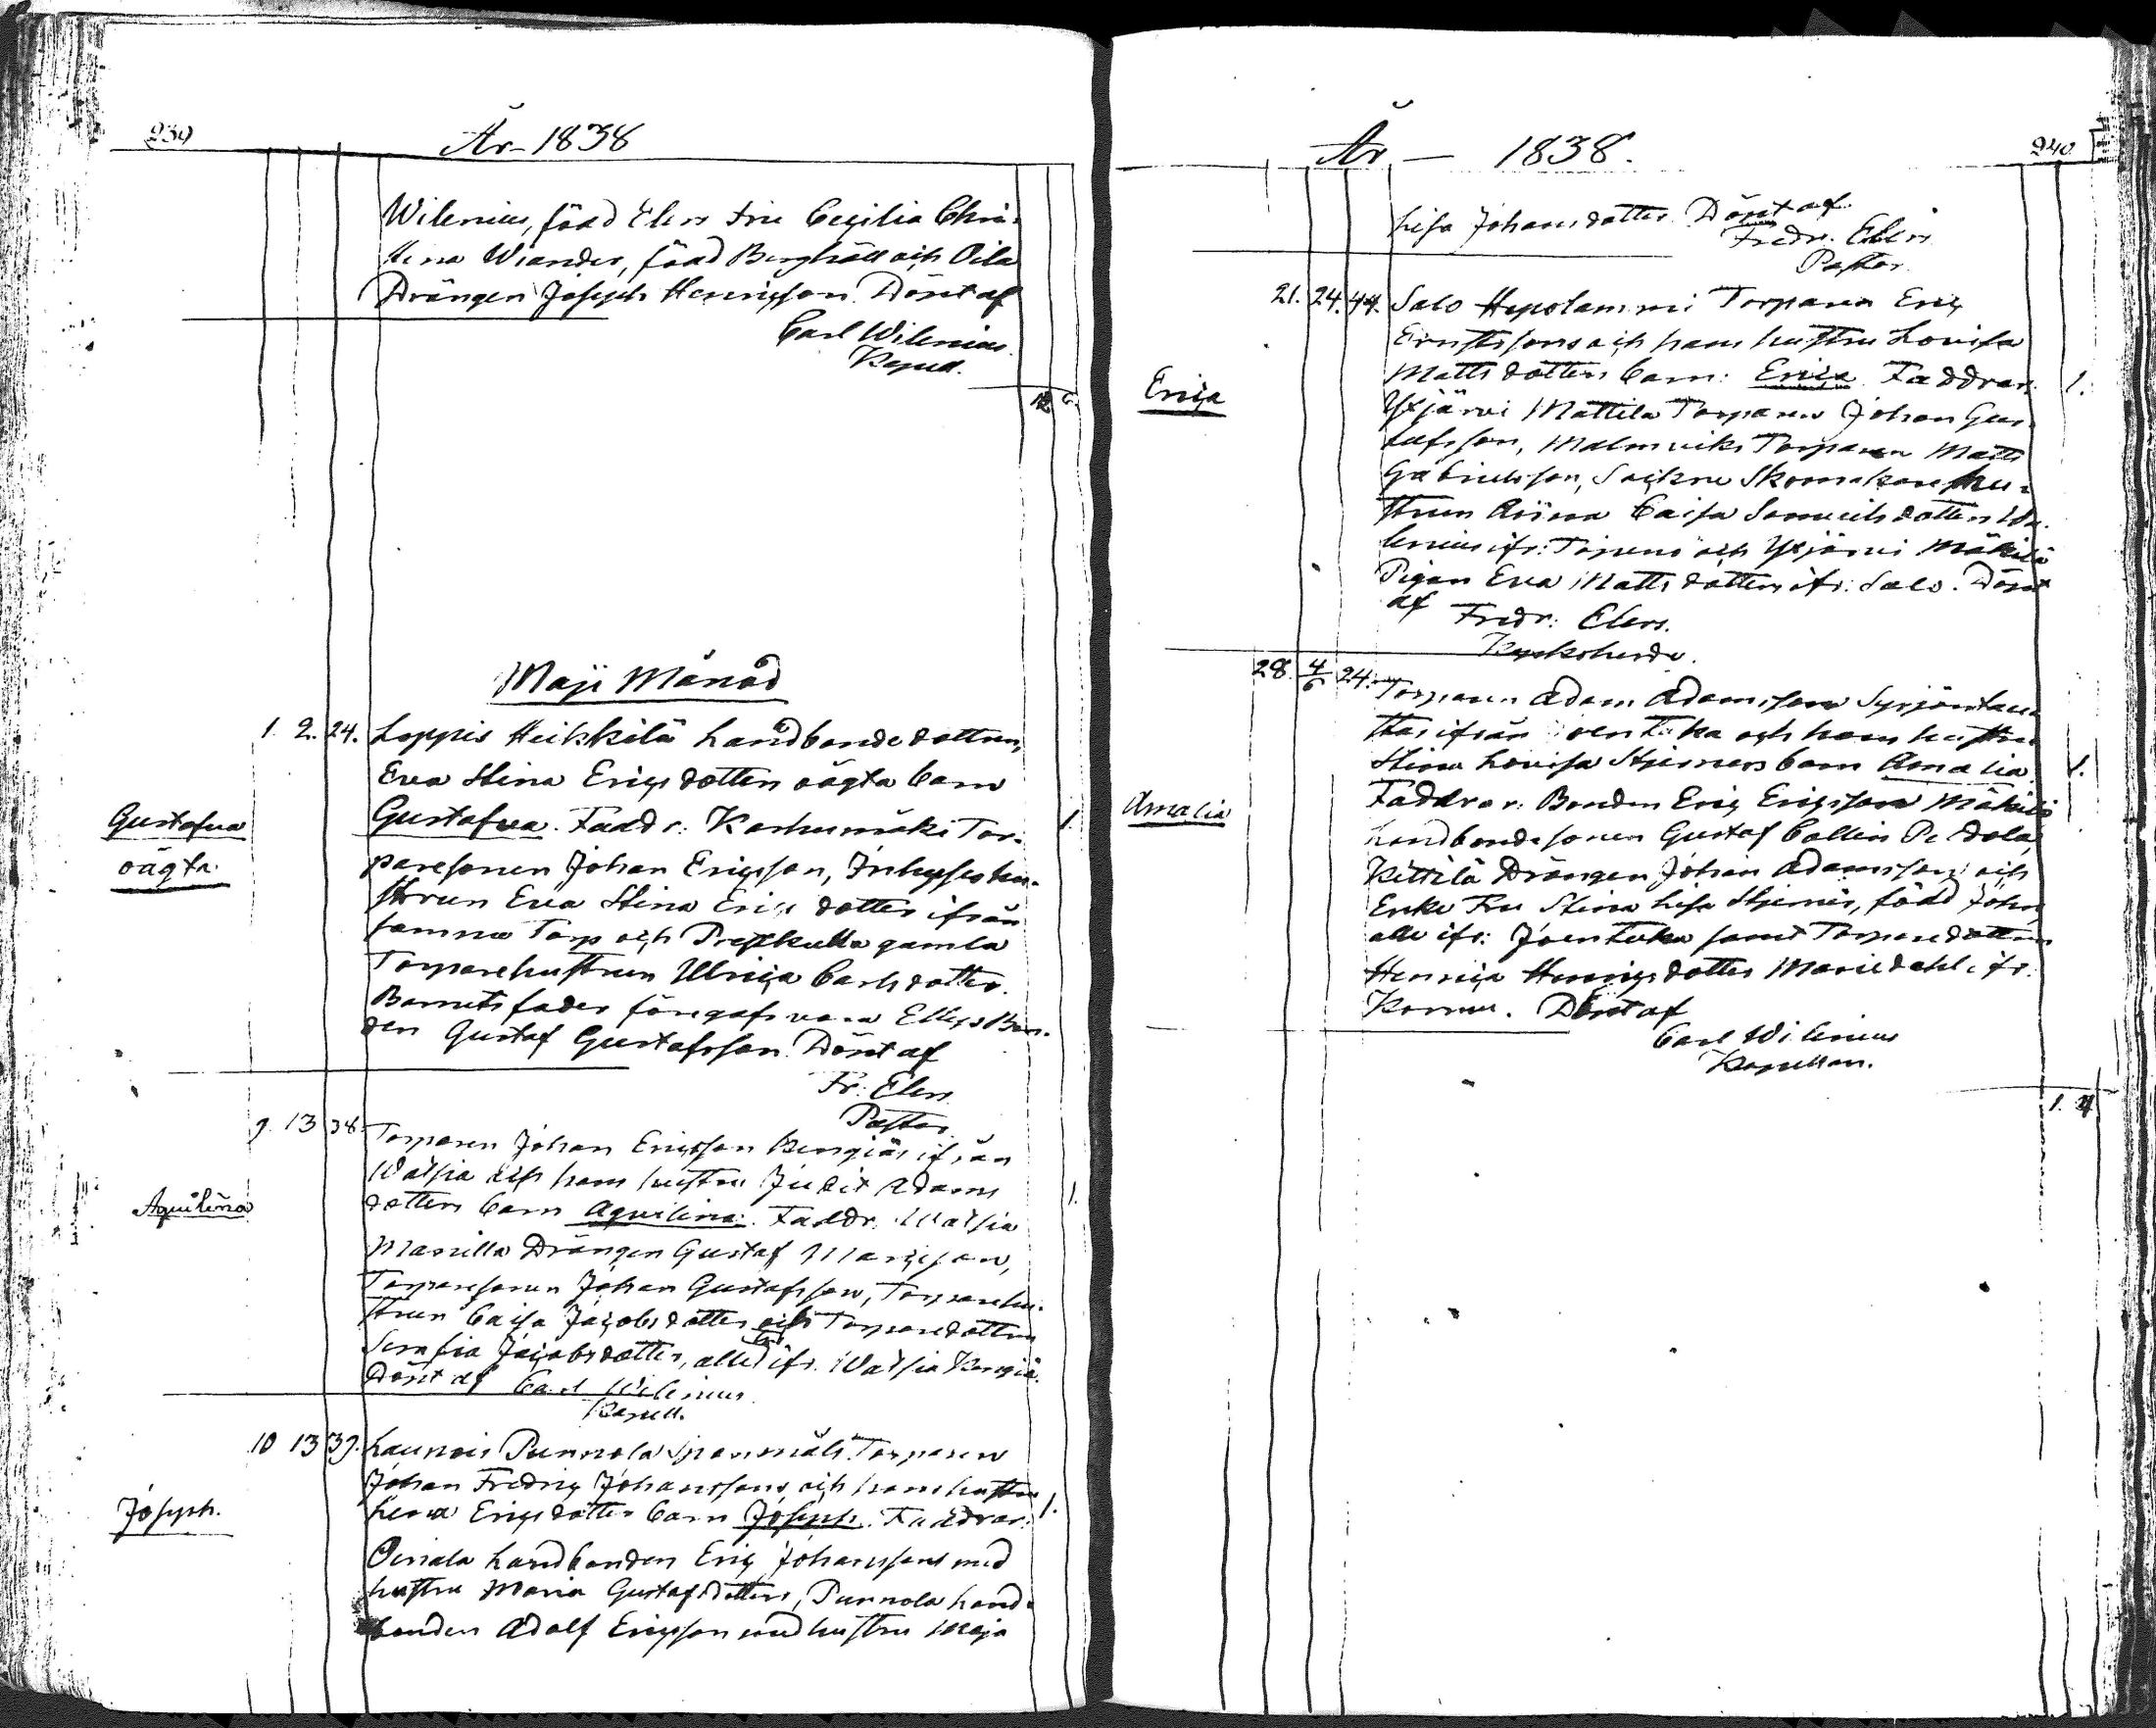 239
År 1838
Wilenius, född Elers Fru Cecilia Chri-
stina Wiander, född Berghäll och Oila
Drängen Joseph Henricson. Döpt af
Carl Wilenius
Kapell.
Maji Månad
1. 2. 24. Loppis Heikkilä Landbonde dottren,
Eva Stina Ericsdotters oägta barn
Gustafva oägta.
Gustafva. Faddr: Karhumäki Tor-
1.
paresonen Johan Ericsson, Inhyses hu-
strun Eva Stina Erics dotter ifrån
samma Torp och Prestkulla gamla
Torparehustrun Ulrica Carlsdotter.
Barnets fader föregafs vara
den Gustaf Gustafsson. Döpt af
Fr: Elers
Pastor
9. 13 38. Torparen Johan Ericsson ifrån
Watsia och hans hustru Judit Adams
1.
Aquilina
dotters barn Aquilina. Faddr: Watsia
Manilla Drängen Gustaf
Torparesonen Johan Gustafsson, Torparehu-
strun Caisa Jacobsdotter och Torparedottren
Serafia Jacobsdotter, alle ifr. Watsia
Döpt af Carl Wilenius
Kapell.
10 13 39. Launois Punnola Torparen
Johan Fredric Johanssons och hans hustru
Joseph.
Lena Ericsdotters barn Joseph. Faddrar:
1.
Oinala Landbonden Eric Johansson med
hustru Maria Gustafsdotter, Punnola Land-
bonden Adolf Ericsson med hustru Maja
År 1838.
240
Lisa Johansdotter. Döpt af
Fredr. Elers
Pastor.
21. 24. 44. Salo Hepolammi Torparen Eric
Ernstssons och hans hustru Lovisa
Erica
Matts dotters barn: Erica. Faddrar:
1.
Ytjärvi Mattila Torparen Johan Gus-
tafsson, Malmviks Torparen Matts
Gabrielsson, Sockne Skomakare hu-
strun Anna Caisa Samuelsdotter
lenius ifr: och Ytjärvi Mäkilä
Pigan Eva Mattsdotter ifr: Salo. Döpt
af Fredr: Elers.
Kyrkoherde.
28. 4/6 24. Torparen Adam Adamsson
ifrån och hans hustru
Stina Lovisa Stjerners barn Amalia
1.
Amalia
Faddrar: Bonden Eric Ericsson Mäkilä
Landbondesonen Gustaf Collin
Kittilä Drängen Johan Adamsson och
Enke Fru Stina Lisa Stjerner, född
alle ifr: Joentaka samt Torparedottren
Henrica Henricsdotter Mariedahl ifr:
Döpt af
Carl Wilenius
Kapellan.
1. 4.